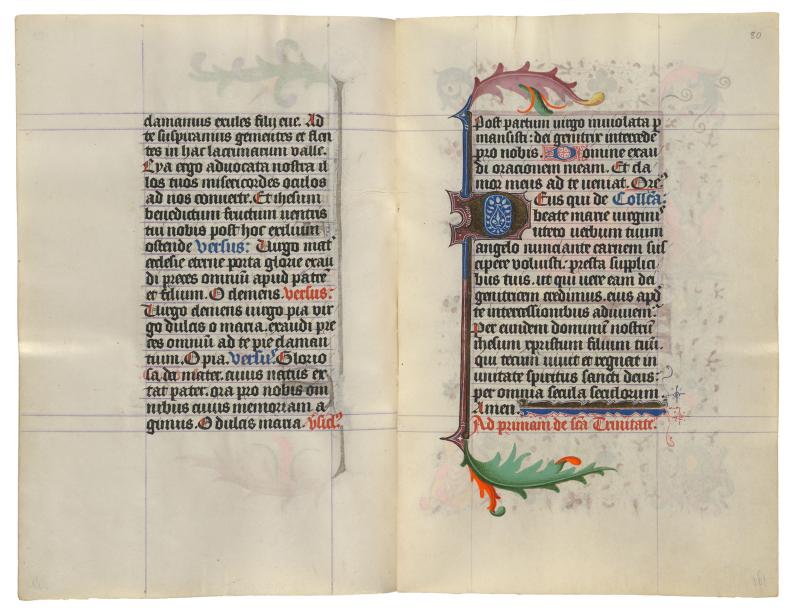 clamamus exules filij eue. Ad
te suspiramus gementes et flen
tes in hac lacrimarum valle.
Eya ergo aduocata nostra il
los tuos misericordes oculos
ad nos conuerte. Et ihesum
benedictum fructum uentris
tui nobis post hoc exilium
ostende versus: Uirgo mat̾
ecclesie eterne porta glorie exau
di preces omniū apud patrē
et filium. O clemens. versus:
Uirgo clemens uirgo pia vir
go dulcis o maria. exaudi pre
ces omniū ad te pie claman
tium. O pia. versus̾ Glorio
sa dei mater. cuius natus ex
tat pater. ora pro nobis om
nibus cuius memoriam a
gimus. O dulcis maria.
80
Post partum uirgo inuiolata p
mansisti: dei genitrix intercede
pro nobis. Domine exau
di orationem meam. Et cla
mor meus ad te ueniat. Ore̾
Deus qui de Collcā:
beate marie uirginis
utero uerbum tuum
angelo nunciante carnem sus
cipere voluisti. presta supplici
bus tuis. ut qui uere eam dei
genitricem credimus. eius apd
te intercessionibus adiuuem̾:
Per eundem dominū nostrū
ihesum xpristum filium tuū.
qui tecum uiuit et regnat in
unitate spiritus sancti deus:
per omnia secula seculorum
Amen.
Ad primam de scā Trinitate.